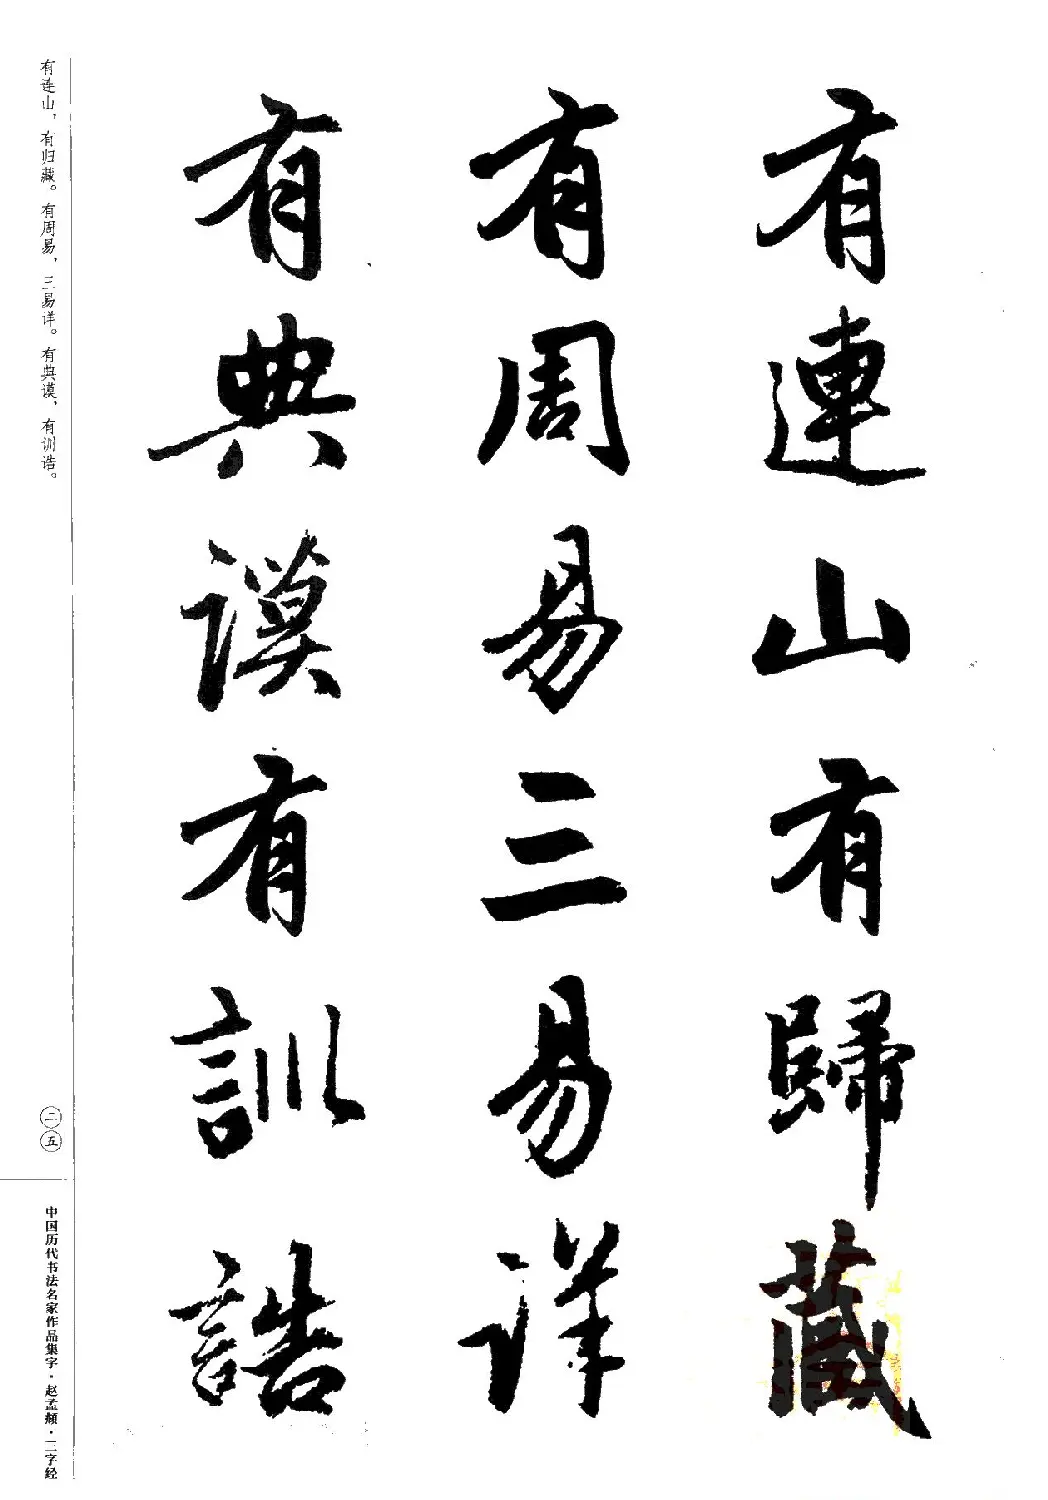 有連山有歸藏
有周易三易詳
有典謨有訓誥
有连山，有归藏。有周易，三易详。有典谟，有训诰。
二五
中国历代书法名家作品集字·赵孟頫·三字经